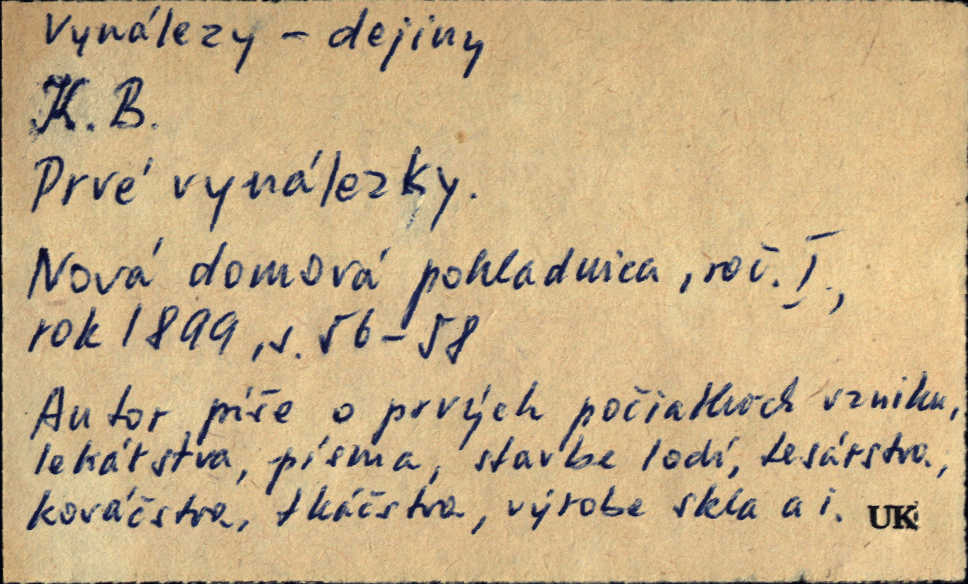 Vynálezy – dejiny
K. B.
Prvé vynálezky.
Nová domová pokladnica, roč. I.,
rok 1899, s. 56–58
Autor píše o prvých počiatkoch vzniku,
lekárstva, písma, stavbe lodí, tesárstva,
kováčstva, tkáčstva, výrobe skla a i. UK